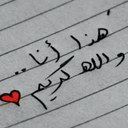 هذا أنا ..
والله كريم